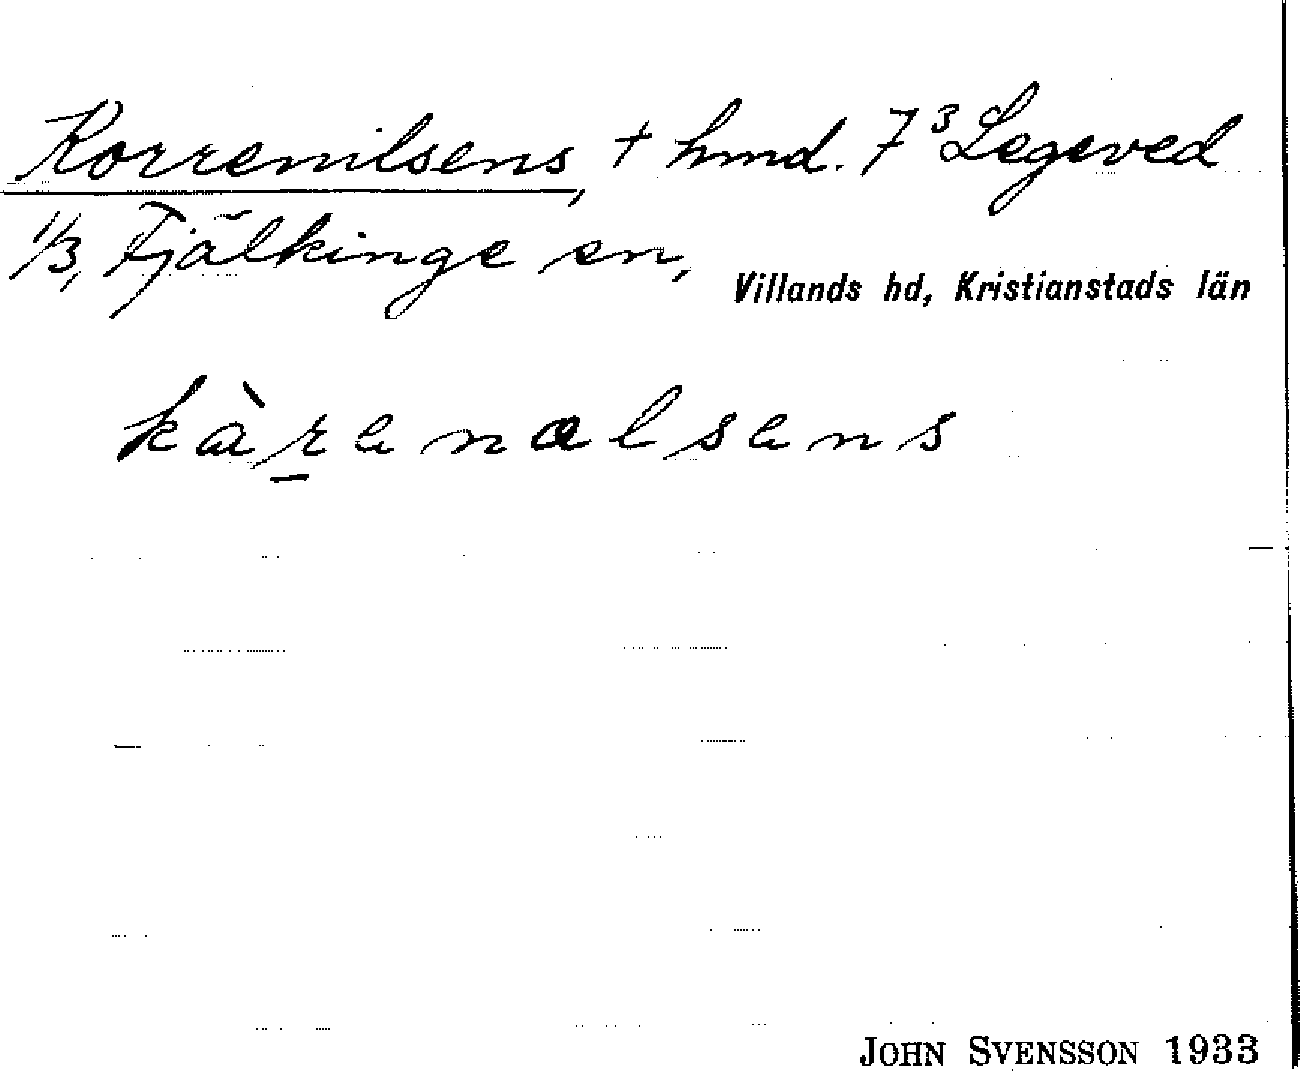 Korrenilsens, + hmd. 7³ Legeved
1/3, Fjälkinge sn,
Villands hd, Kristianstads län
kàr̲anœlsans
JOHN SVENSSON 1933